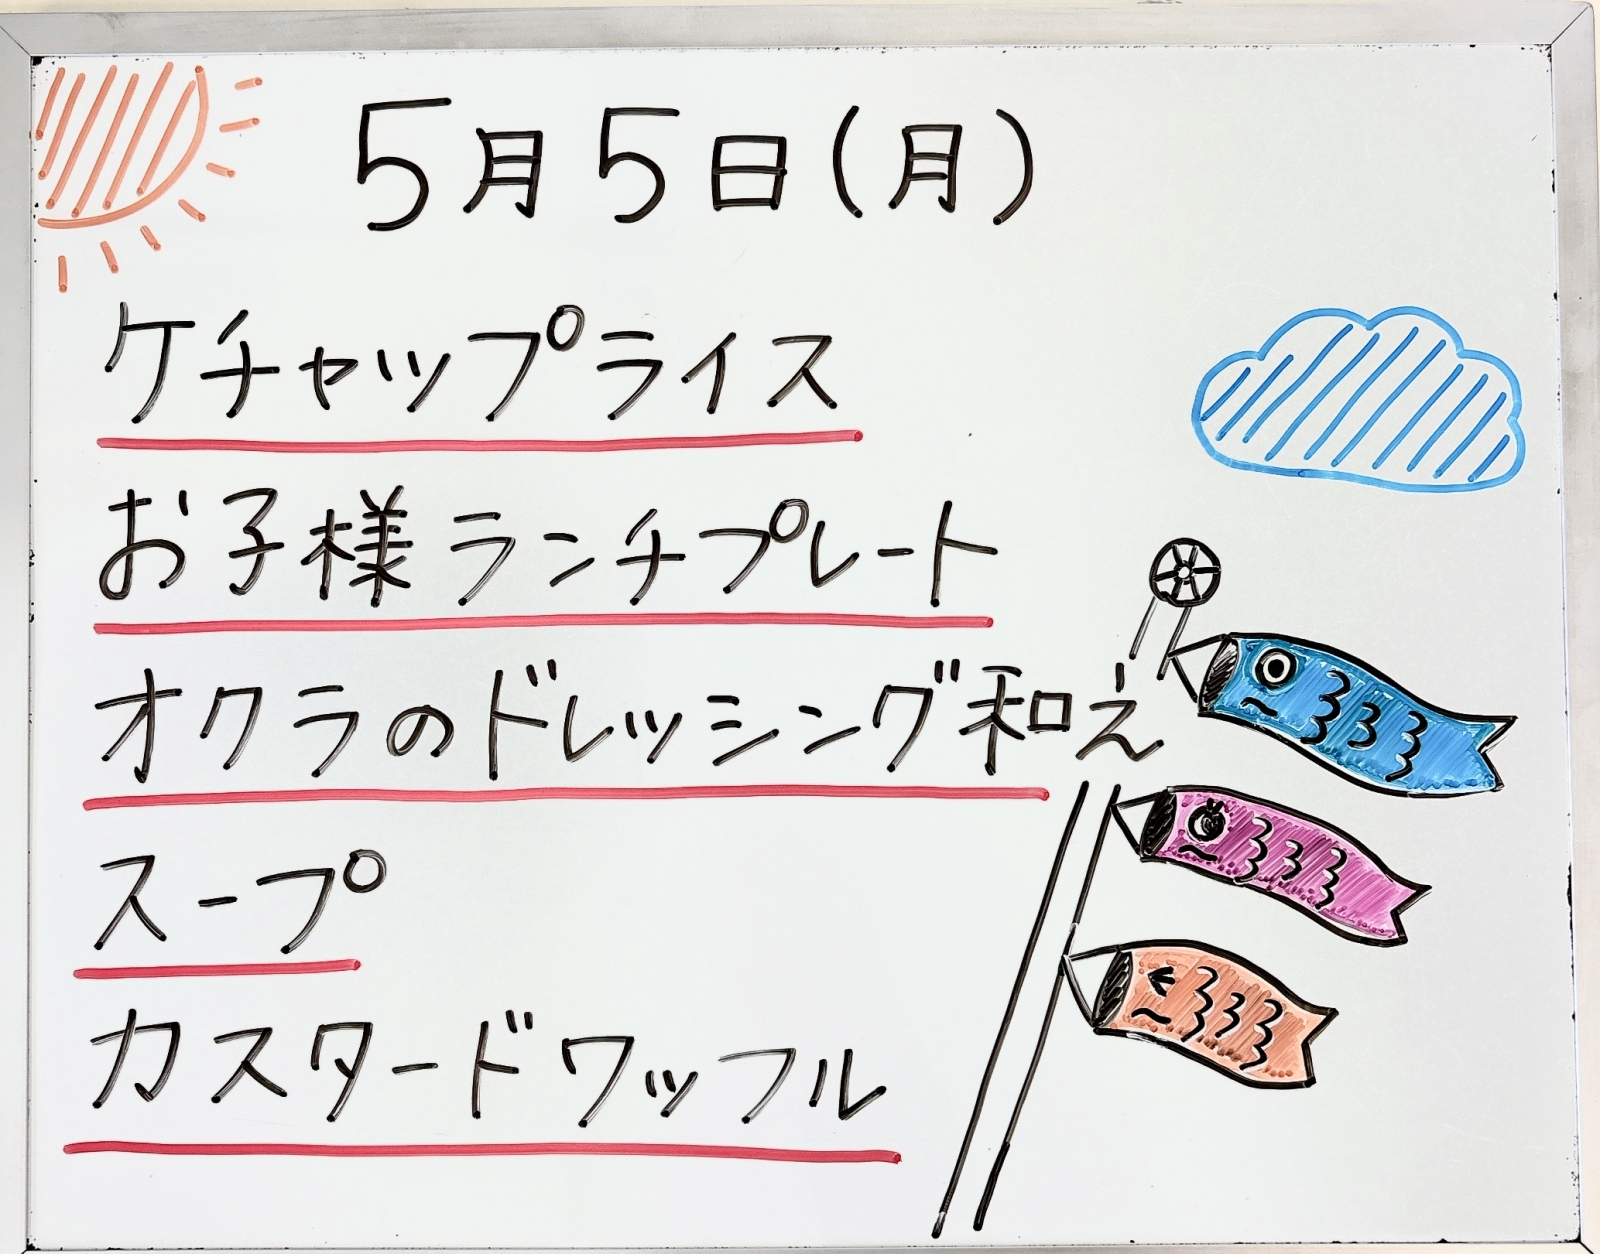 5月5日(月)
ケチャップライス
お子様ランチプレート
オクラのドレッシング和え
スープ
カスタードワッフル